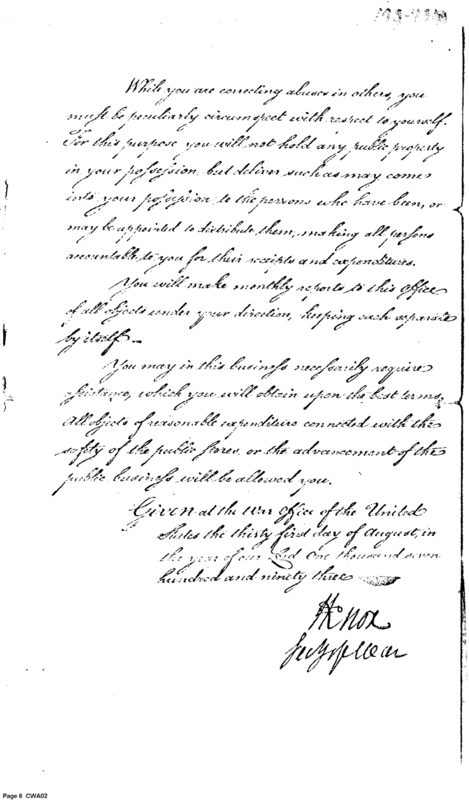 While you are correcting abuses in others, you
must be peculiarly circumspect with respect to yourself.
For this purpose you will not hold any public property
in your possession, but deliver such as may come
into your possession, to the persons who have been, or
may be appointed to distribute them, making all persons
accountable to you for their receipts and expenditures.
You will make monthly reports to this Office
of all objects under your direction, keeping each separate
by itself —
You may in this business necessarily require
assistance, which you will obtain upon the best terms.
All objects of reasonable expenditure connected with the
safety of the public stores, or the advancement of the
public business will be allowed you.
Given at the War Office of the United
States the thirty first day of August, in
the year of our Lord One thousand seven
hundred and ninety three
HKnox
Secy of War
Page 6 CWA02